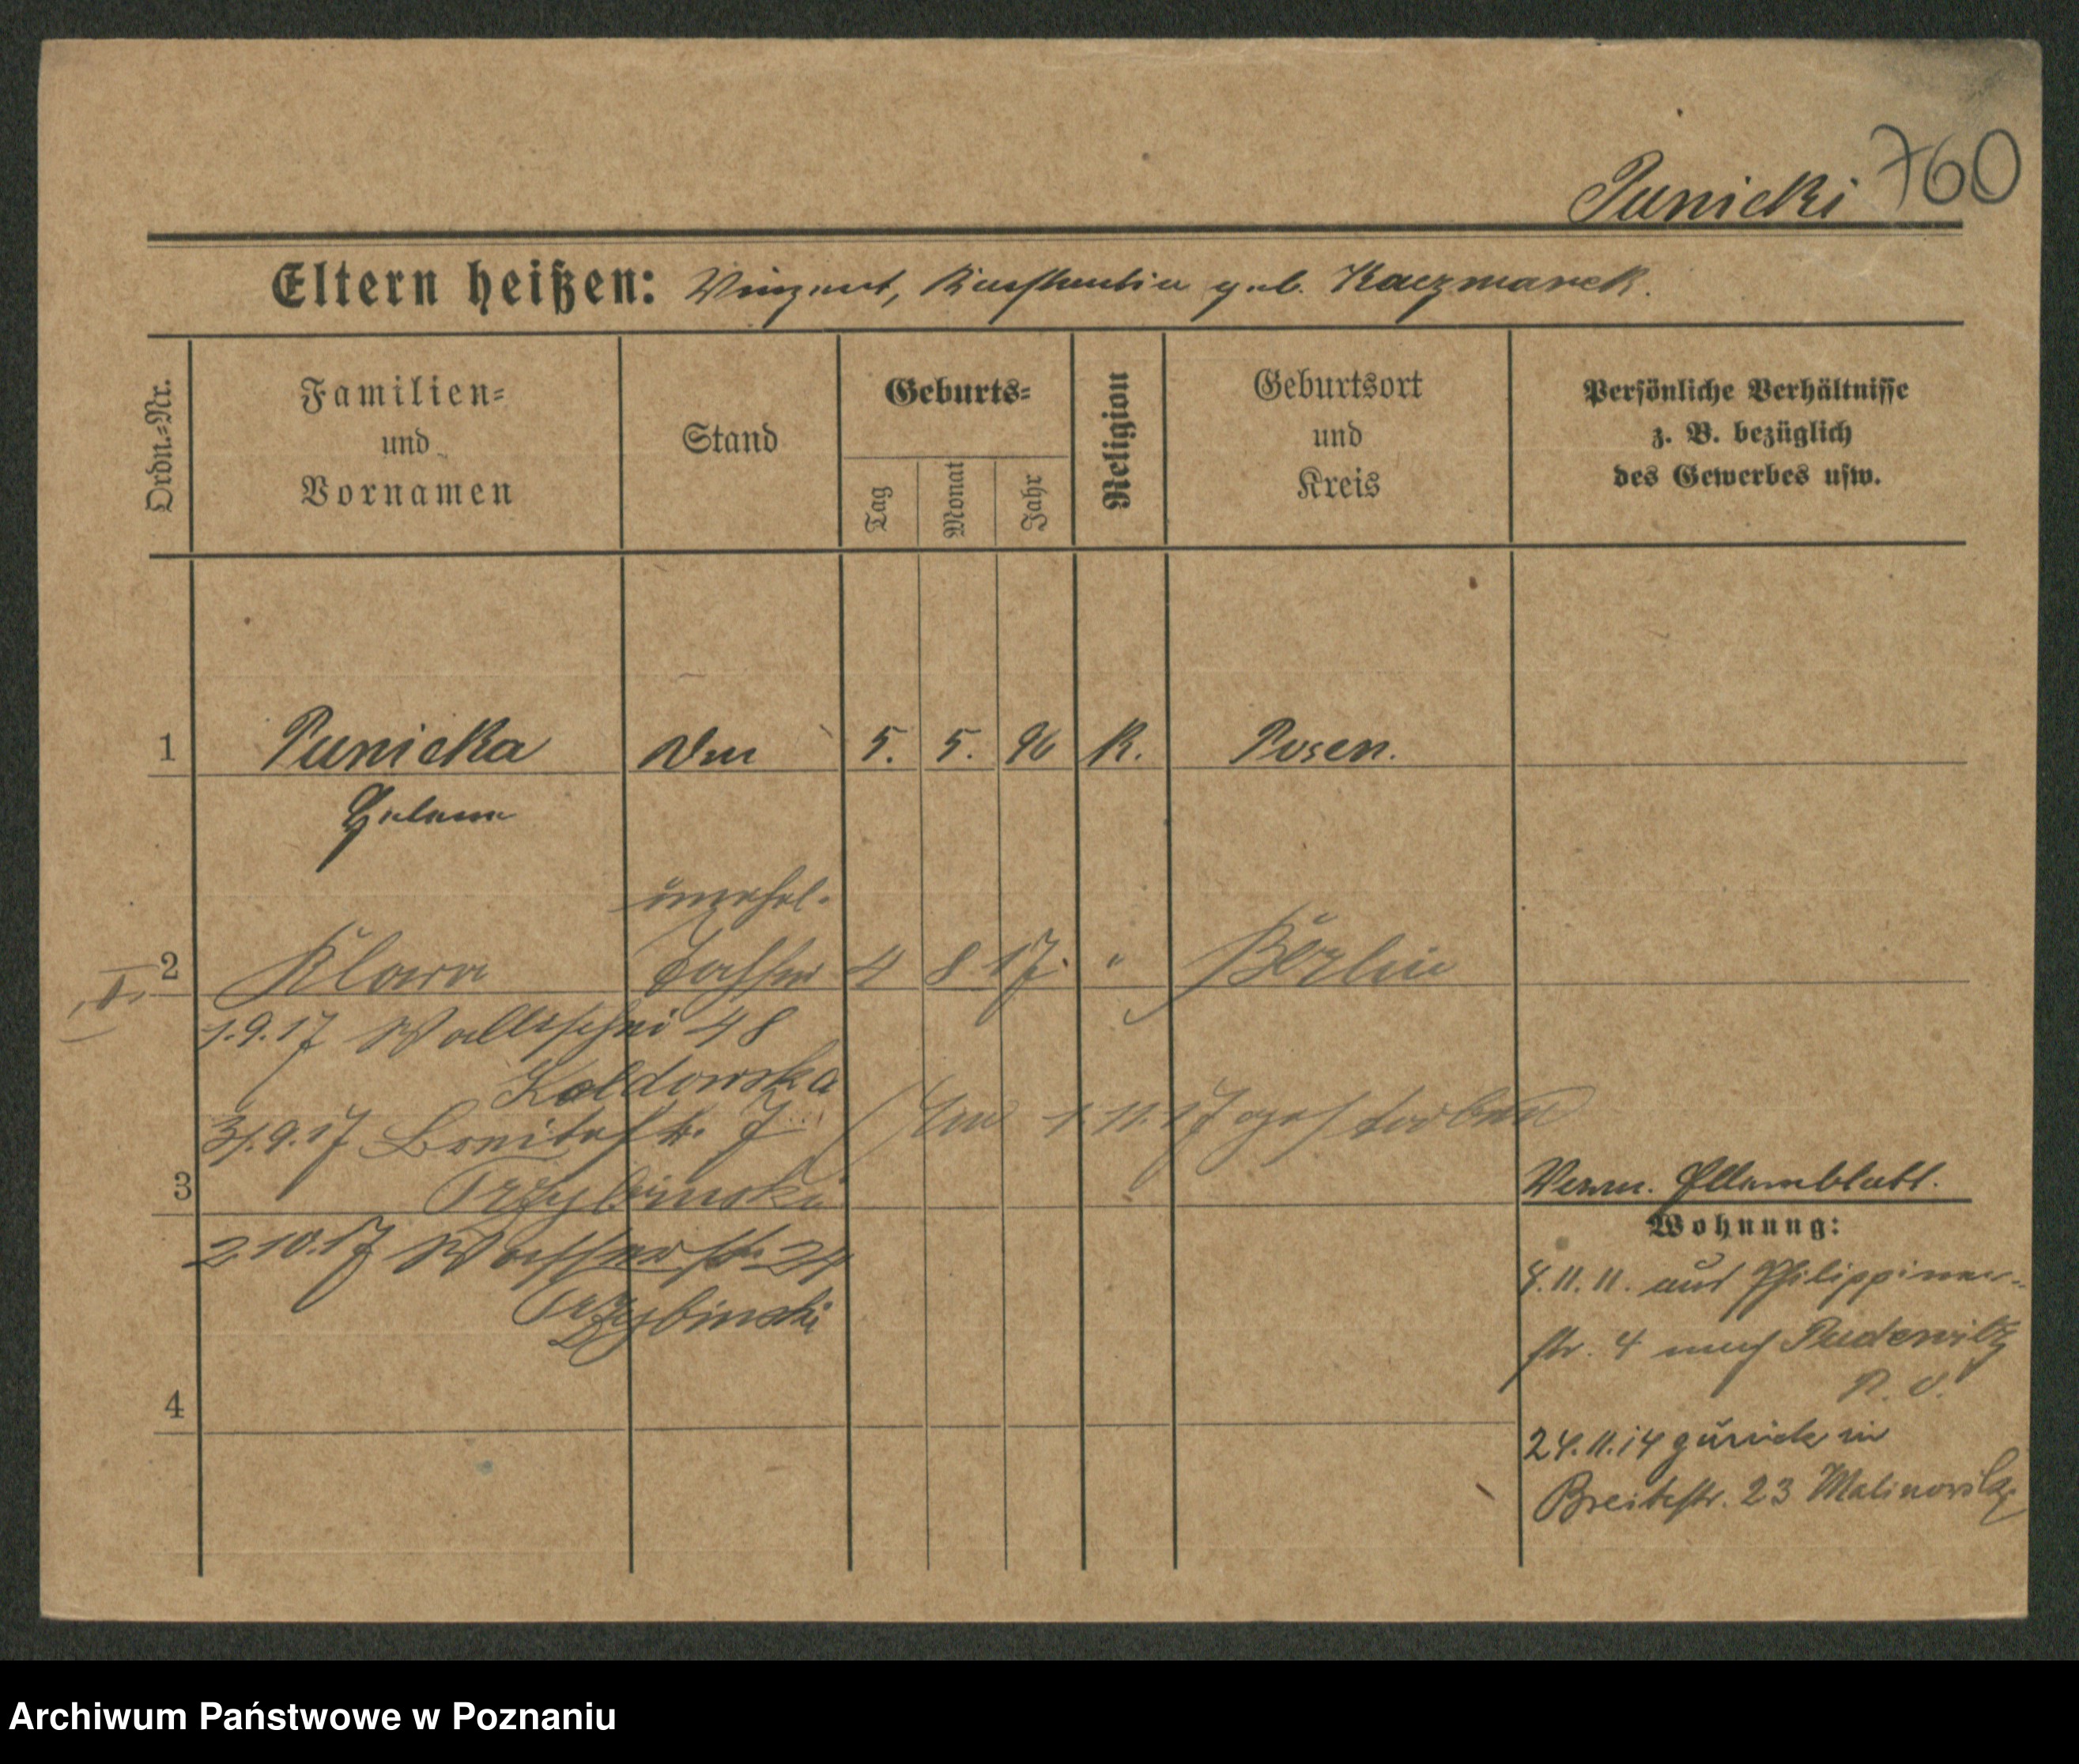 Punicki 760
Eltern heißen: Vinzent, Konstantia geb. Kaczmarek.
Ordn.=Nr.
Familien=
und
Vornamen
Stand
Geburts=
Tag
Monat
Jahr
Religion
Geburtsort
und
Kreis
Persönliche Verhältnisse
z. B. bezüglich
des Gewerbes usw.
1 Punicka 5. 5. 96 K. Posen.
Helene
unehel.
2 Klara Tochter 4 8 17. " Berlin
I.
1.9.17 Wallischei 48
Koldowska
Am 1.11.17 gestorben
.9.17 Breitestr. 7
Przybinska
3
Verm. Elternblatt.
Wohnung:
2.10.17 Wasserstr. 24
Przybinski
4.11.11. aus Philippinen-
str. 4 nach Pudewitz
4
24.11.14 zurück in
Breitestr. 23 Malinowska
Archiwum Państwowe w Poznaniu